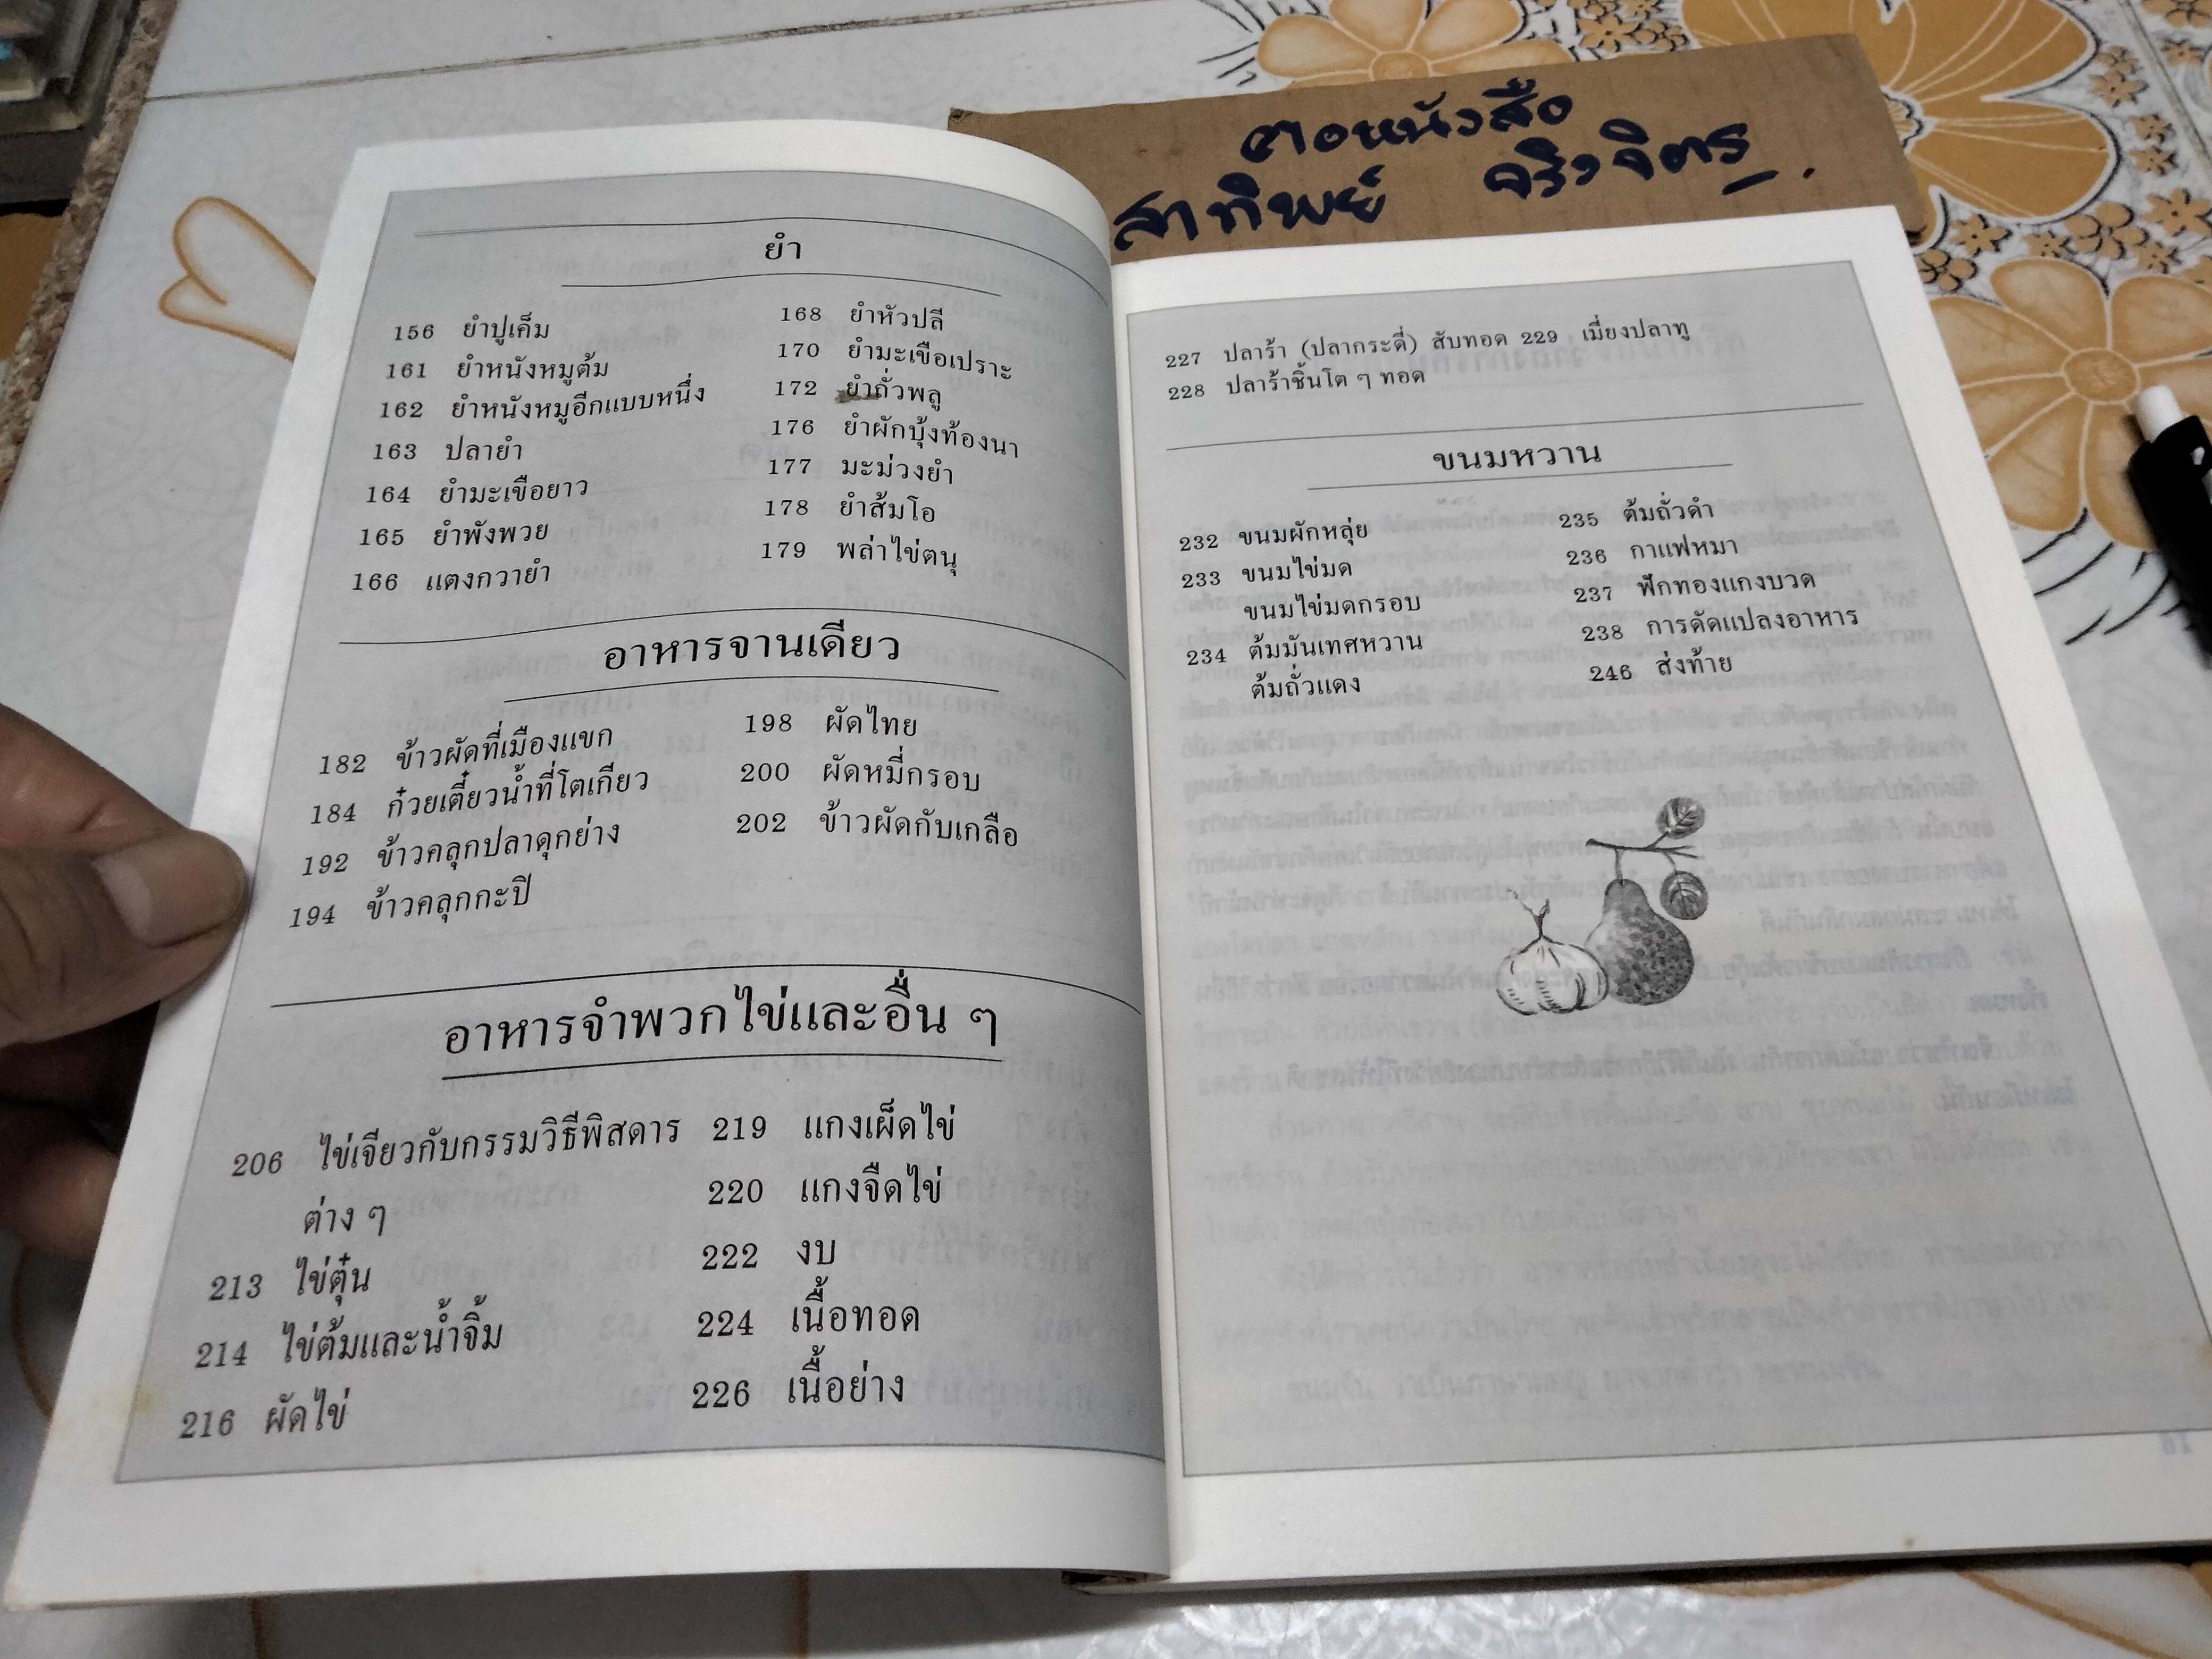 คอหนังสือ
สาทิพย์ จริงจิตร
ยำ
156 ยำปูเค็ม
161 ยำหนังหมูต้ม
162 ยำหนังหมูอีกแบบหนึ่ง
163 ปลายำ
164 ยำมะเขือยาว
165 ยำพังพวย
166 แตงกวายำ
168 ยำหัวปลี
170 ยำมะเขือเปราะ
172 ยำถั่วพลู
176 ยำผักบุ้งท้องนา
177 มะม่วงยำ
178 ยำส้มโอ
179 พล่าไข่ตนุ
อาหารจานเดียว
182 ข้าวผัดที่เมืองแขก
184 ก๋วยเตี๋ยวน้ำที่โตเกียว
192 ข้าวคลุกปลาดุกย่าง
194 ข้าวคลุกกะปิ
198 ผัดไทย
200 ผัดหมี่กรอบ
202 ข้าวผัดกับเกลือ
อาหารจำพวกไข่และอื่น ๆ
206 ไข่เจียวกับกรรมวิธีพิสดาร
ต่าง ๆ
213 ไข่ตุ๋น
214 ไข่ต้มและน้ำจิ้ม
216 ผัดไข่
219 แกงเผ็ดไข่
220 แกงจืดไข่
222 งบ
224 เนื้อทอด
226 เนื้อย่าง
227 ปลาร้า (ปลากระดี่) สับทอด 229 เมี่ยงปลาทู
228 ปลาร้าชิ้นโต ๆ ทอด
ขนมหวาน
232 ขนมผักหลุ่ย
233 ขนมไข่มด
ขนมไข่มดกรอบ
234 ต้มมันเทศหวาน
ต้มถั่วแดง
235 ต้มถั่วดำ
236 กาแฟหมา
237 ฟักทองแกงบวด
238 การดัดแปลงอาหาร
246 ส่งท้าย